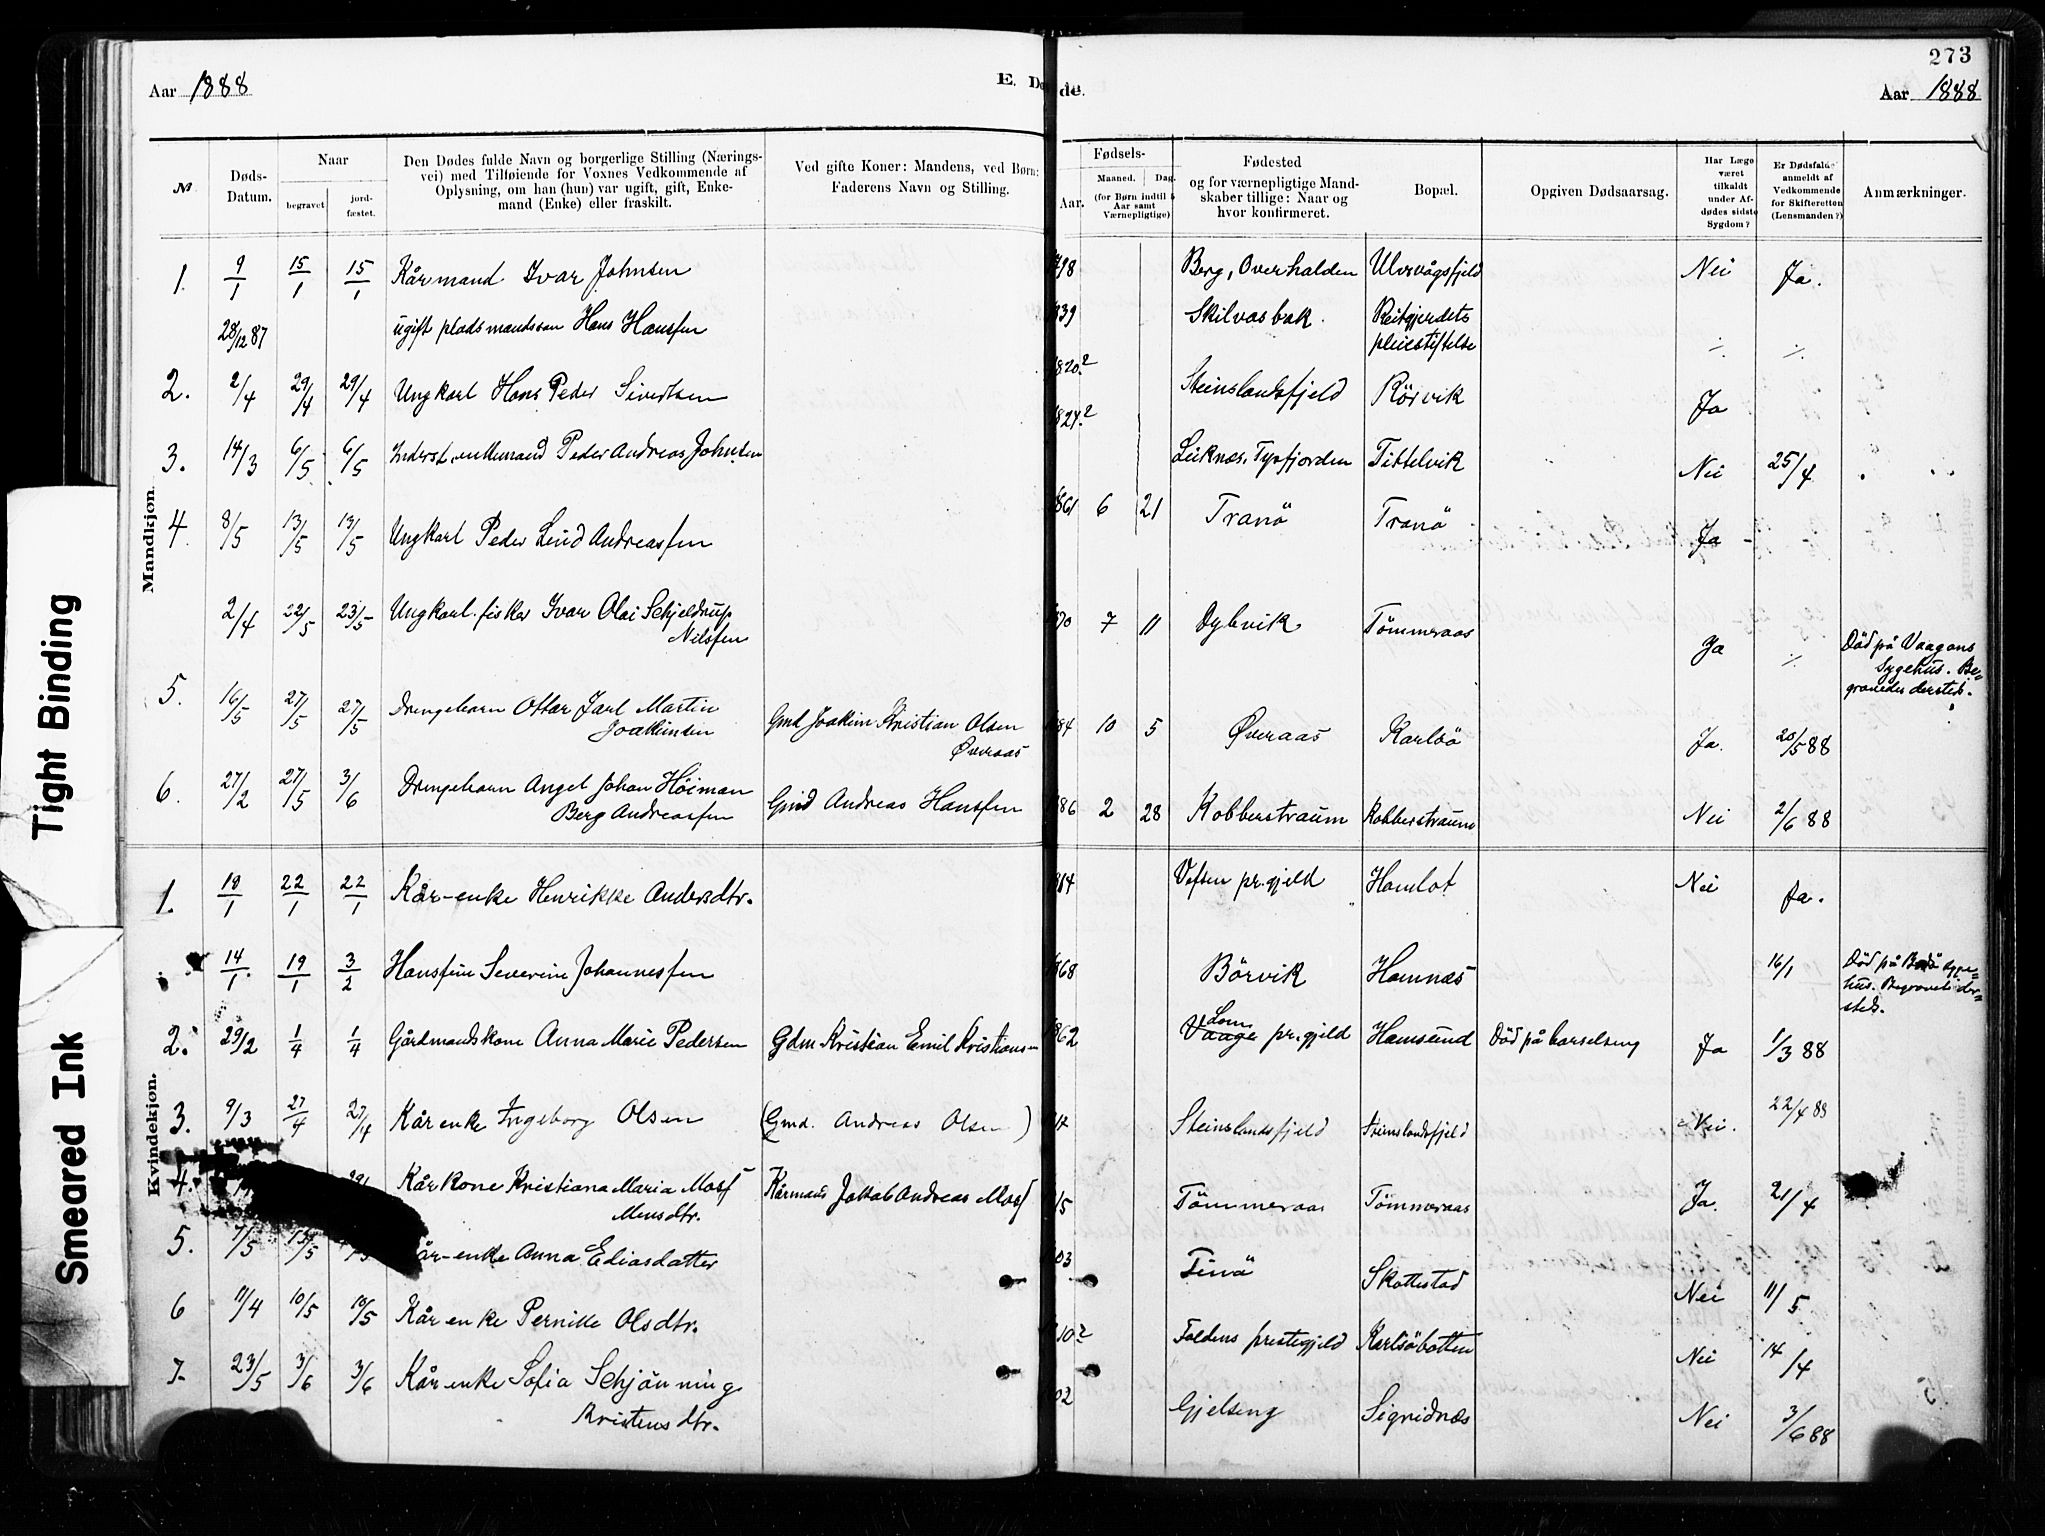 Aar 1888
E. Dø
de.
273
Aar 1888
№
Døds-
Datum.
Naar
begravet
jord-
fæstet.
Den Dødes fulde Navn og borgerlige Stilling (Nærings-
vei) med Tilføiende for Voxnes Vedkommende af
Oplysning, om han (hun) var ugift, gift, Enke-
mand (Enke) eller fraskilt.
Ved gifte Koner: Mandens, ved Børn:
Faderens Navn og Stilling.
Fødsels-
Aar.
Maaned. Dag.
(for Børn indtil 5
Aar samt
Værnepligtige)
Fødested
og for værnepligtige Mand-
skaber tillige: Naar og
hvor konfirmeret.
Bopæl.
Opgiven Dødsaarsag.
Har Læge
været
tilkaldt
under Af-
dødes sidste
Sygdom?
Er Dødsfaldet
anmeldt af
Vedkommende
for Skifteretten
(Lensmanden?)
Anmærkninger.
Mandkjøn.
1. 9/1 15/1 15/1 Kårmand Ivar Johnsen 798 Berg, Overhalden Ulvsvågsfjeld Nei Ja.
28/12 87 ugift pladsmandssøn Hans Hansen 839 Skilvasbak. Reitgjerdets
pleiestiftelse ·/. ·/.
2. 2/4 29/4 29/4 Ungkarl Hans Peder Sivertsen 820? Steinslandsfjeld Rörvik Ja
3. 14/3 6/5 6/5 Inderst, enkemand Peder Andreas Johnsen 827? Leiknæs, Tysfjorden Tittelvik Nei 25/4
4. 8/5 13/5 13/5 Ungkarl Peder Lind Andreassen 861 6 21 Tranö Tranö Ja
2/4 22/5 23/5 Ungkarl. fisker Ivar Olai Schjeldrup
Nilssen 870 7 11 Dybvik Tömmeraas Ja ·/. Död på Vaagans
Sygehus. Be-
gravedes dersteds.
5. 16/5 27/5 27/5 Drengebarn Ottar Jarl Martin
Joakimsen Gmd Joakim Kristian Olsen
Øveraas 84 10 5 Øveraas Karlsö Ja. 20/5 88
6. 27/2 27/5 3/6 Drengebarn Angel Johan Höiman
Berg Andreassen Gmd Andreas Hanssen 86 2 28 Kobberstraum Kobberstraum Nei 2/6 88
Kvindekjøn.
1. 18/1 22/1 22/1 Kår-enke Henrikke Andersdtr. 814 Vefsen pr.gjeld Hamlot Nei Ja.
14/1 19/1 3/2 Hansine Severine Johannessen 868 Börvik Hamnæs 16/1 Död på Bodö syge-
hus. Begravet der-
steds.
2. 29/2 1/4 1/4 Gårdmandskone Anna Marie Pedersen Gdm. Kristian Emil Kristiansen 862 Lom
Vaage pr.gjeld Hamsund Död på barselseng Ja 1/3 88
3. 9/3 27/4 27/4 Kårenke Ingeborg Olsen (Gmd. Andreas Olsen) 12 Steinslandsfjeld Steinslandsfjeld Nei. 22/4 88
4. Kårkone Kristiana Maria Mosf
Monsdtr. Kårmand Jakob Andreas Mosf 15 Tömmeraas Tömmeraas Ja. 21/4
5. 7/5 13/5 Kår-enke Anna Eliasdatter 03 Tinö Skottestad Nei 11/5
6 11/4 10/5 10/5 Kårenke Pernille Olsdtr. 10? Foldens prestegjeld Karlsöbotten Nei 14/4
7. 23/5 3/6 3/6 Kårenke Sofia Schjönning
Kristensdtr. 02 Gjelseng Sigridnæs Nei 3/6 88
Tight Binding
Smeared Ink